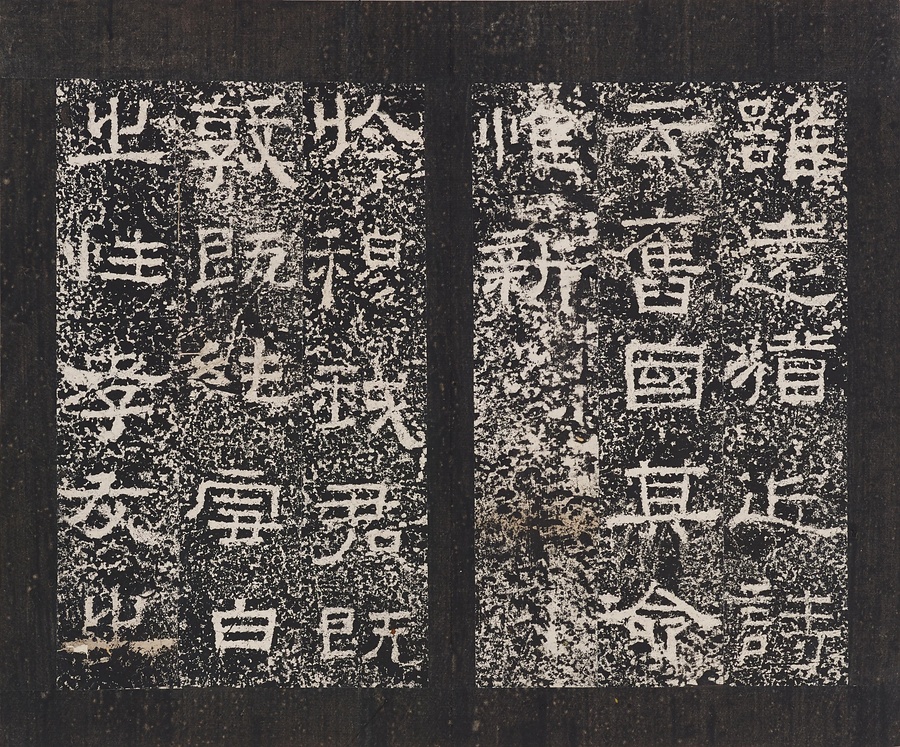 雖遠猶近詩
云舊國其命
惟新
於穆我君既
敦既純雪白
之性孝友之